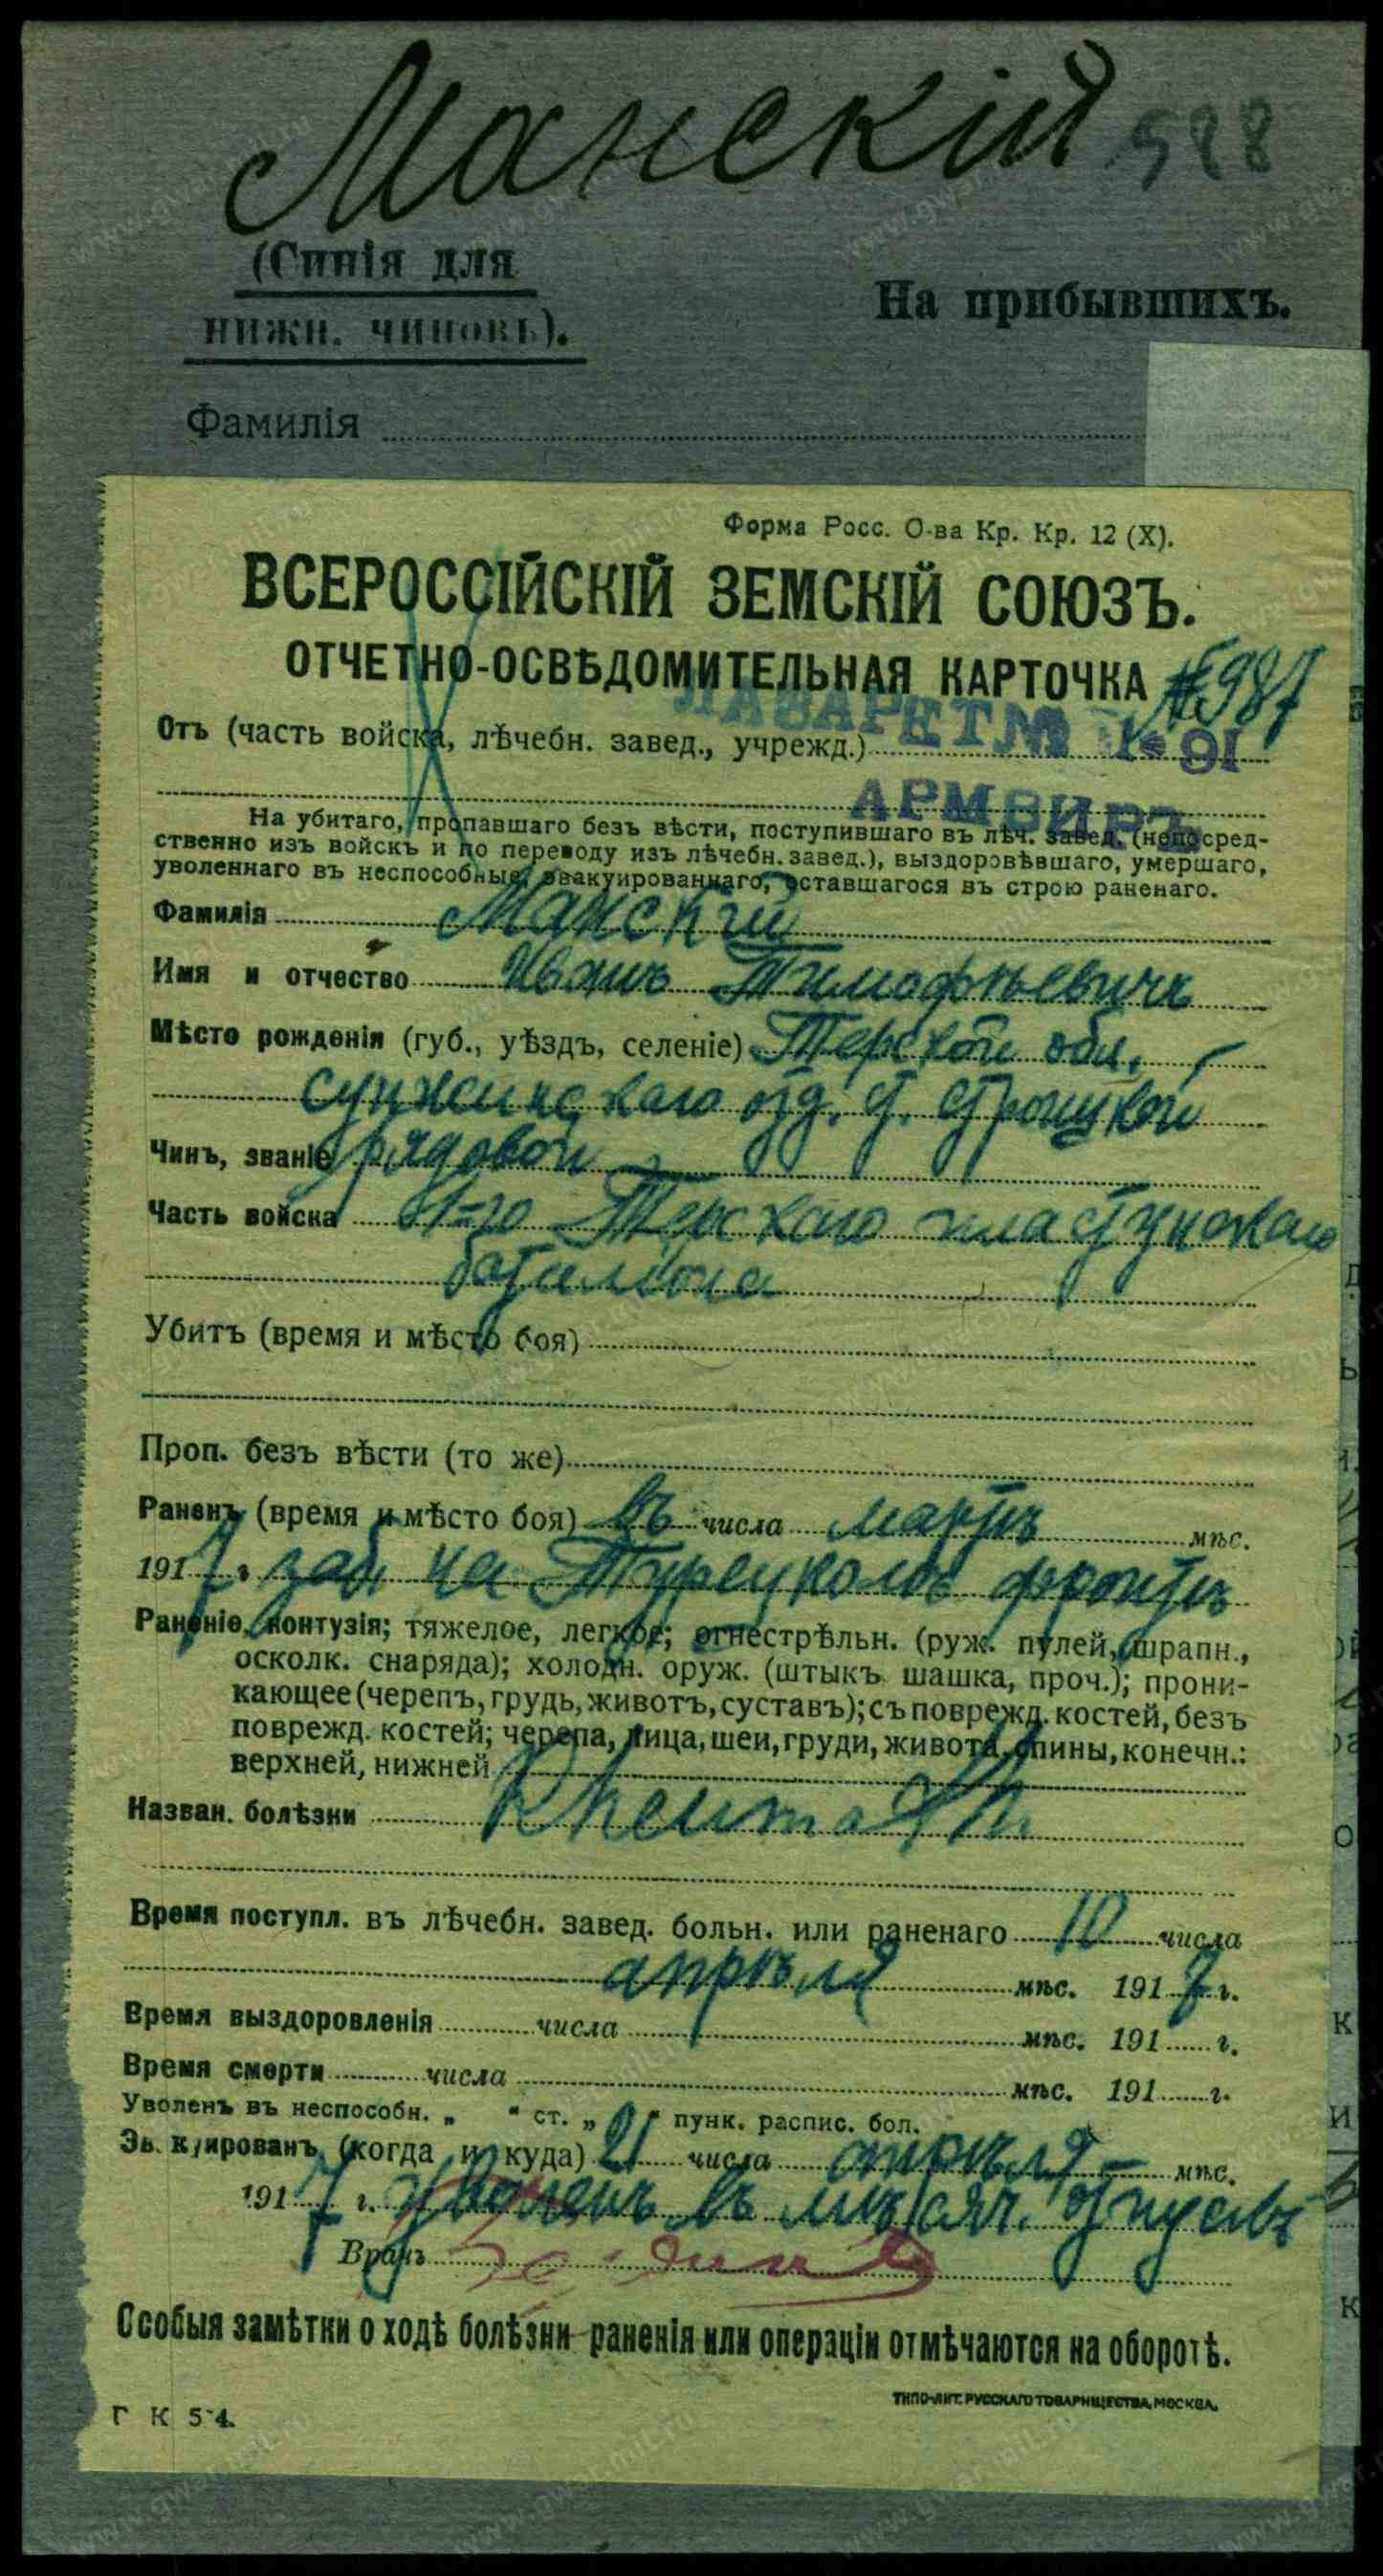 Манскій 588
(Синія для
нижн. чиновъ).
На прибывшихъ.
Фамилія
Форма Росс. О-ва Кр. Кр. 12 (X).
ВСЕРОССІЙСКІЙ ЗЕМСКІЙ СОЮЗЪ.
ОТЧЕТНО-ОСВѢДОМИТЕЛЬНАЯ КАРТОЧКА № 987
ЛАЗАРЕТ №
Отъ (часть войска, лѣчебн. завед., учрежд.) 91
АРМАВИРЪ
На убитаго, пропавшаго безъ вѣсти, поступившаго въ лѣч. завед. (непосред-
ственно изъ войскъ и по переводу изъ лѣчебн. завед.), выздоровѣвшаго, умершаго,
уволеннаго въ неспособные, эвакуированнаго, оставшагося въ строю раненаго.
Фамилія Манскій
Имя и отчество Иванъ Тимофѣевичъ
Мѣсто рожденія (губ., уѣздъ, селеніе) Терской обл.
сунженскаго отд. ст. Троицкой
Чинъ, званіе рядовой
Часть войска 1-го Терскаго пластунскаго
баталіона
Убитъ (время и мѣсто боя)
Проп. безъ вѣсти (то же)
Раненъ (время и мѣсто боя) въ числа мартѣ мѣс.
1917 г. заб. на Турецкомъ фронтѣ
Раненіе, контузія; тяжелое, легкое; огнестрѣльн. (руж. пулей, шрапн.,
осколк. снаряда); холодн. оруж. (штыкъ шашка, проч.); прони-
кающее (черепъ, грудь, животъ, суставъ); съ поврежд. костей, безъ
поврежд. костей; черепа, лица, шеи, груди, живота, спины, конечн.:
верхней, нижней
Назван. болѣзни Rheumat
Время поступл. въ лѣчебн. завед. больн. или раненаго 10 числа
апрѣля мѣс. 1917 г.
Время выздоровленія числа мѣс. 191 г.
Время смерти числа мѣс. 191 г.
Уволенъ въ неспособн. „ " ст. „ " пунк. распис. бол.
Эвакуированъ (когда и куда) 21 числа апрѣля мѣс.
1917 г. уволенъ въ мѣсячн. отпускъ
Врачъ
Особыя замѣтки о ходѣ болѣзни раненія или операціи отмѣчаются на оборотѣ.
ТИПО-ЛИТ. РУССКАГО ТОВАРИЩЕСТВА, МОСКВА.
Г К 54.